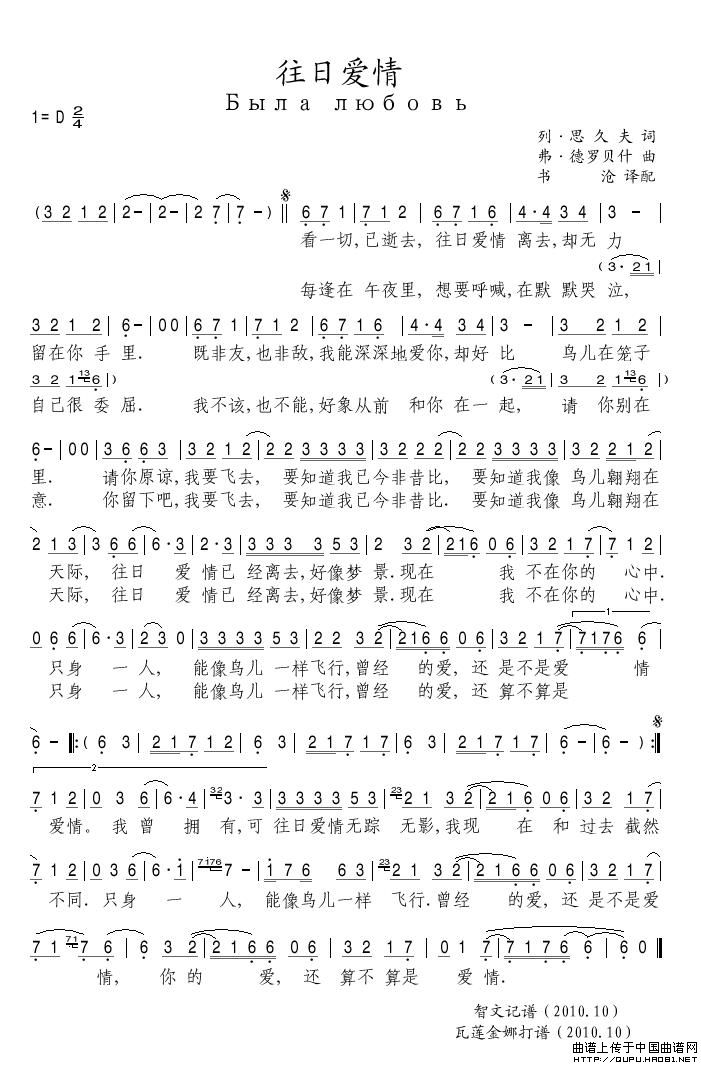 往日爱情
Была любовь
1=D 2/4
列·思久夫 词
弗·德罗贝什 曲
书 沧 译配
(3 2 1 2 | 2- | 2- | 2 7 | 7 -) || 6 7 1 | 7 1 2 | 6 7 1 6 | 4·4 3 4 | 3 - |
看一切,已逝去, 往日爱情 离去,却无 力
(3· 21
每逢在 午夜里, 想要呼喊,在默 默哭 泣,
3 2 1 2 | 6- | 0 0 | 6 7 1 | 7 1 2 | 6 7 1 6 | 4·4 3 4 | 3 - | 3 2 1 2 |
留在你 手 里. 既非友,也非敌,我能深深地爱你,却好 比 鸟儿在笼子
3 2 1 13 6 | ) (3· 21 | 3 2 1 13 6 | )
自己很 委 屈. 我不该,也不能,好象从前 和你 在一 起, 请 你别在
6- | 0 0 | 3 6 6 3 | 3 2 1 2 | 2 2 | 3 3 3 3 | 3 2 2 | 2 2 | 3 3 3 3 | 3 2 1 2 |
里. 请你原谅,我要飞去, 要知道我已今非昔比, 要知道我像 鸟儿翱翔在
意. 你留下吧,我要飞去, 要知道我已今非昔比. 要知道我像 鸟儿翱翔在
2 1 3 | 3 6 6 | 6·3 | 2·3 | 3 3 3 3 5 3 | 2 3 2 | 2 1 6 0 6 | 3 2 1 7 | 7 1 2 |
天际, 往日 爱 情已 经离去,好像梦 景.现在 我 不在你的 心中.
天际, 往日 爱 情已 经离去,好像梦 景.现在 我 不在你的 心中.
1
0 6 6 | 6·3 | 2 3 0 | 3 3 3 3 5 3 | 2 2 3 2 | 2 1 6 6 0 6 | 3 2 1 7 | 7 1 7 6 6 |
只身 一 人, 能像鸟儿 一样飞行,曾经 的爱,还 是不是爱 情
只身 一 人, 能像鸟儿 一样飞行,曾经 的爱,还 算不算是
6 - ||:( 6 3 | 2 1 7 1 2 | 6 3 | 2 1 7 1 7 | 6 3 | 2 1 7 1 7 | 6 - | 6 - ) :||
2
7 1 2 | 0 3 6 | 6·4 | 32 3·3 | 3 3 3 3 5 3 | 23 2 1 3 2 | 2 1 6 0 6 | 3 2 1 7 |
爱情。我 曾 拥 有,可 往日爱情无踪 无影,我现 在 和 过去 截然
7 1 2 | 0 3 6 | 6·1 | 7176 7 - | 1 3 7 6 6 3 | 23 2 1 3 2 | 2 1 6 6 0 6 | 3 2 1 7 |
不同. 只身 一 人, 能像鸟儿一样 飞行.曾经 的爱,还 是不是爱
7 1 71 7 6 | 6 3 2 | 2 1 6 6 0 6 | 3 2 1 7 | 0 1 7 | 7 1 7 6 6 | 6 0 ||
情, 你 的 爱, 还 算不 算是 爱 情.
智文记谱(2010.10)
瓦莲金娜打谱(2010.10)
曲谱上传于中国曲谱网
HTTP://QUPU.HAO81.NET